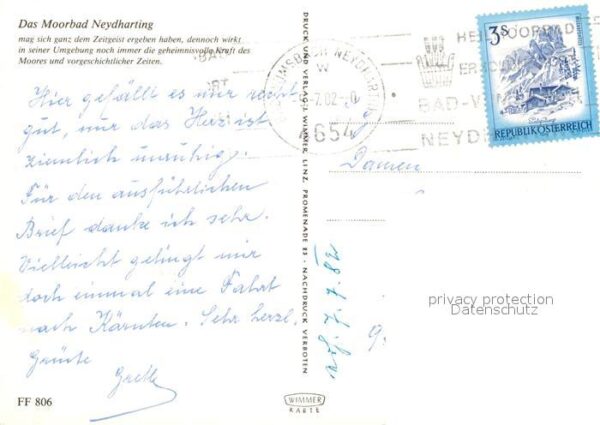 Das Moorbad Neydharting
mag sich ganz dem Zeitgeist ergeben haben, dennoch wirkt
in seiner Umgebung noch immer die geheimnisvolle Kraft des
Moores und vorgeschichtlicher Zeiten.
Hier gefällt es mir recht
gut, nur das Herz ist
ziemlich unruhig.
Für den ausführlichen
Brief danke ich sehr.
Vielleicht gelingt mir
doch einmal eine Fahrt
nach Kärnten. Sehr herzl.
Grüße
Grelle
FF 806
DRUCK UND VERLAG: WIMMER, LINZ, PROMENADE 23 - NACHDRUCK VERBOTEN
WIMMER
KARTE
NEYDHARTING
7.82-0
4654
HEILMOORBAD
BAD-
NEYD
3S
REPUBLIK ÖSTERREICH
Damen
7.7.82
9.
privacy protection
Datenschutz